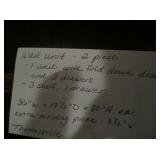 wall unit - 2 piece
- 1 unit with fold down desk
and 3 drawers
- 3 shelf, 1 drawer
36"W x 17½"D x 80"H ea
extra molding piece
Thomasville